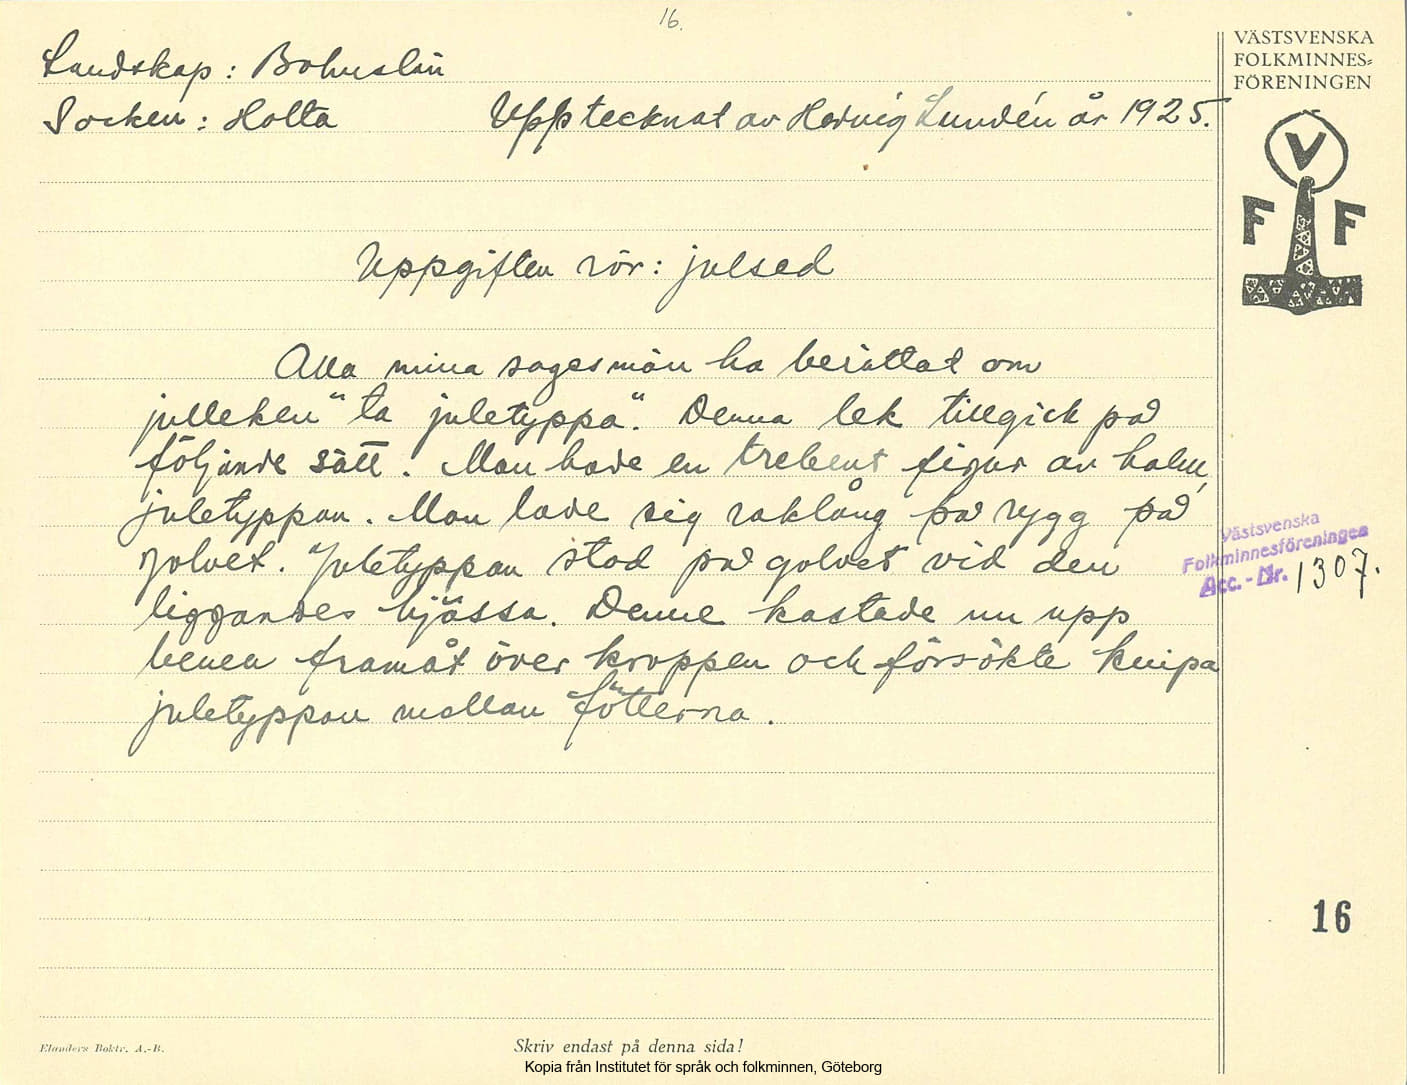 16.
Landskap: Bohuslän
Socken: Holta Upptecknat av Hedvig Lundén år 1925.
VÄSTSVENSKA
FOLKMINNES-
FÖRENINGEN
V
F F
Uppgiften rör: julsed
Alla mina sagesmän ha berättat om
julleken "ta juletyppa". Denna lek tillgick på
följande sätt. Man hade en trebent figur av halm,
juletyppan. Man lade sig raklång på rygg på
golvet. Juletyppan stod på golvet vid den
liggandes hjässa. Denne kastade nu upp
benen framåt över kroppen och försökte knipa
juletyppan mellan fötterna.
Västsvenska
Folkminnesföreningen
Acc.-Nr. 1307.
16
Elanders Boktr. A.-B.
Skriv endast på denna sida!
Kopia från Institutet för språk och folkminnen, Göteborg